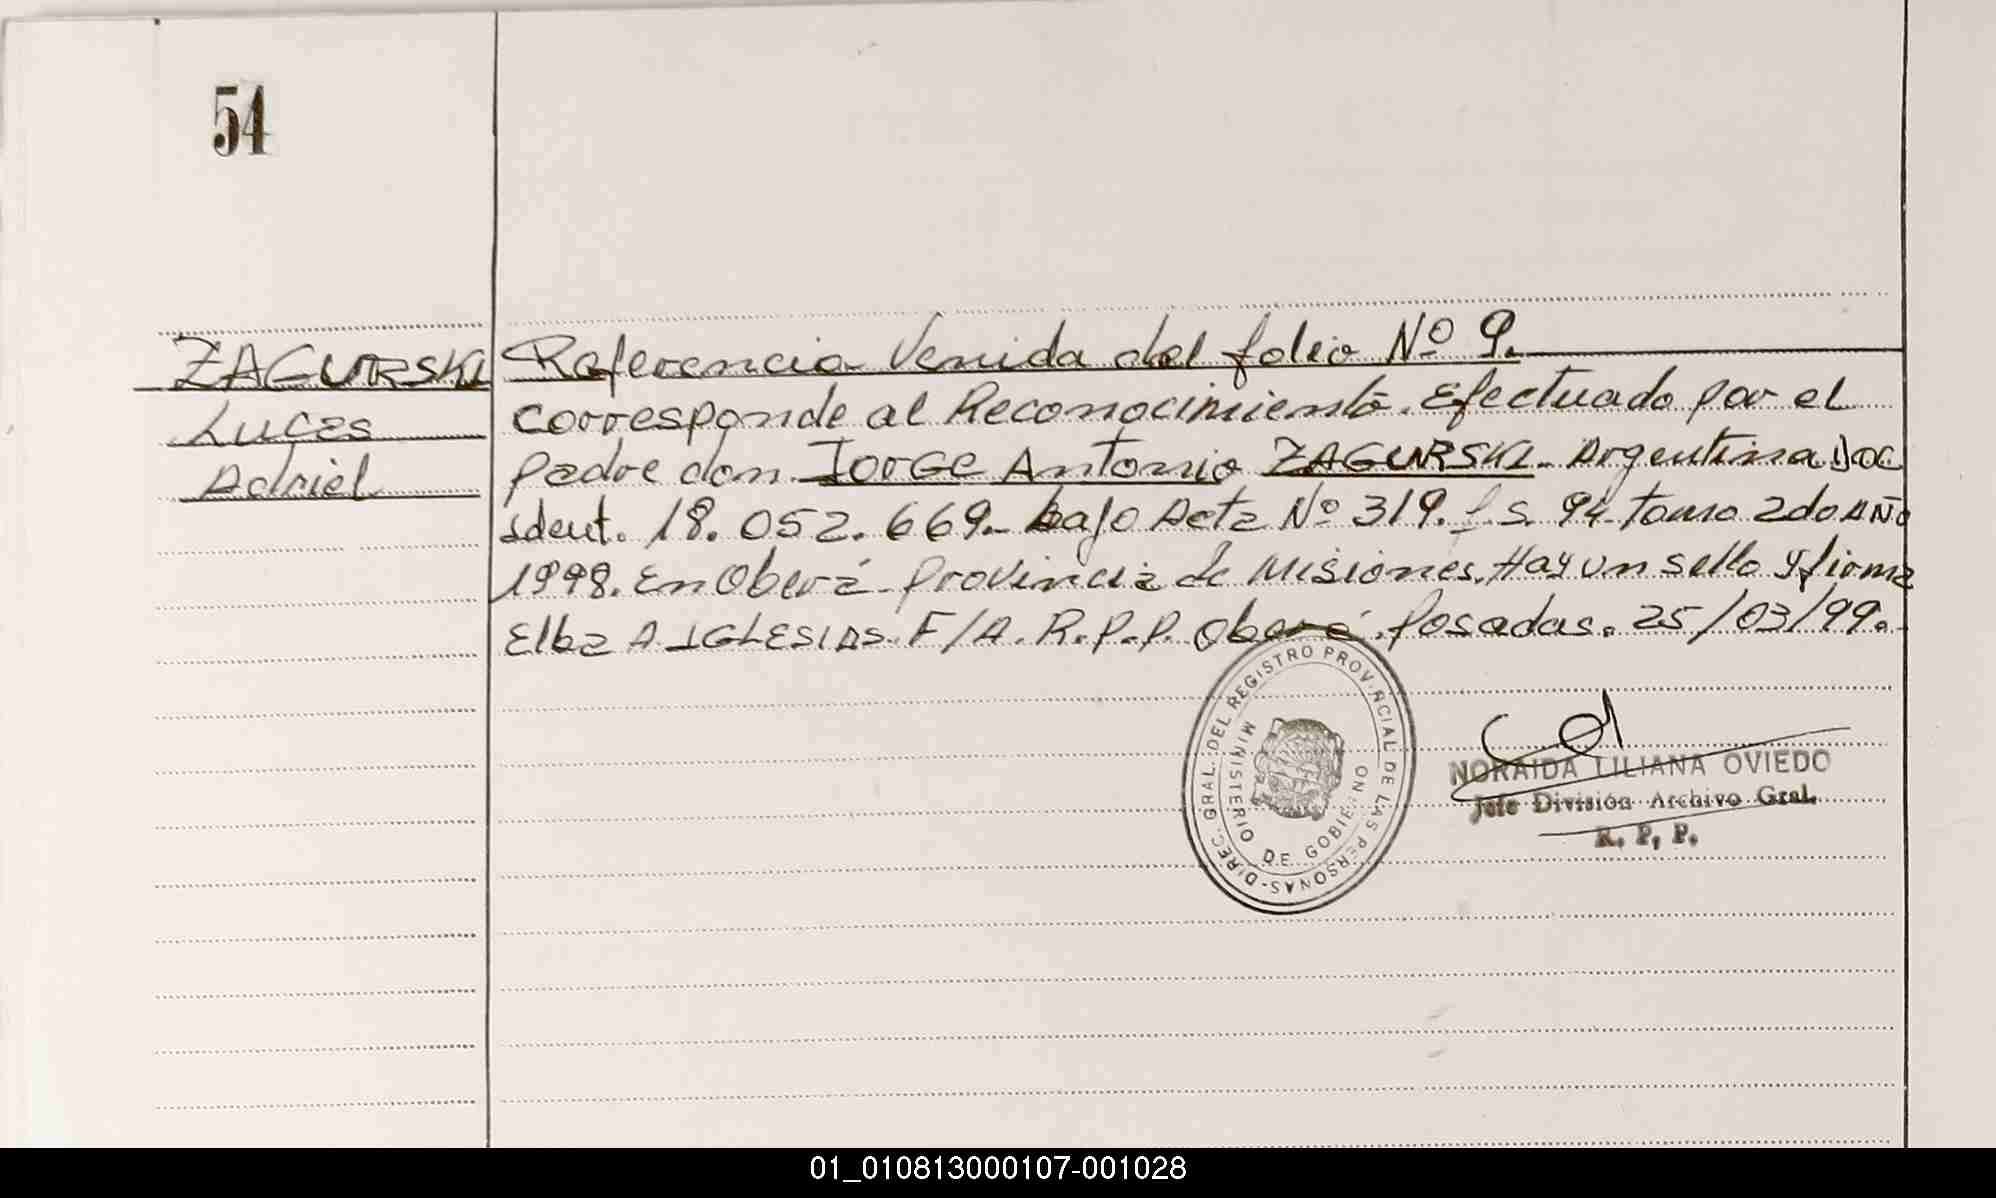 54
ZAGURSKI
Lucas
Adriel
Referencia Venida del folio Nº 9.
corresponde al Reconocimiento. Efectuado por el
padre don Jorge Antonio ZAGURSKI. Argentina Doc
ident. 18.052.669.- bajo Acta Nº 319. fs. 94. tomo 2do AÑo
1998. En Oberá Provincia de Misiones. Hay un sello y firma
Elba A IGLESIAS. F/A. R.P.P. Oberá. Posadas. 25/03/99.-
DIREC. GRAL. DEL REGISTRO PROVINCIAL DE LAS PERSONAS-
MINISTERIO DE GOBIERNO
NORAIDA LILIANA OVIEDO
Jefe División Archivo Gral.
R. P. P.
01_010813000107-001028